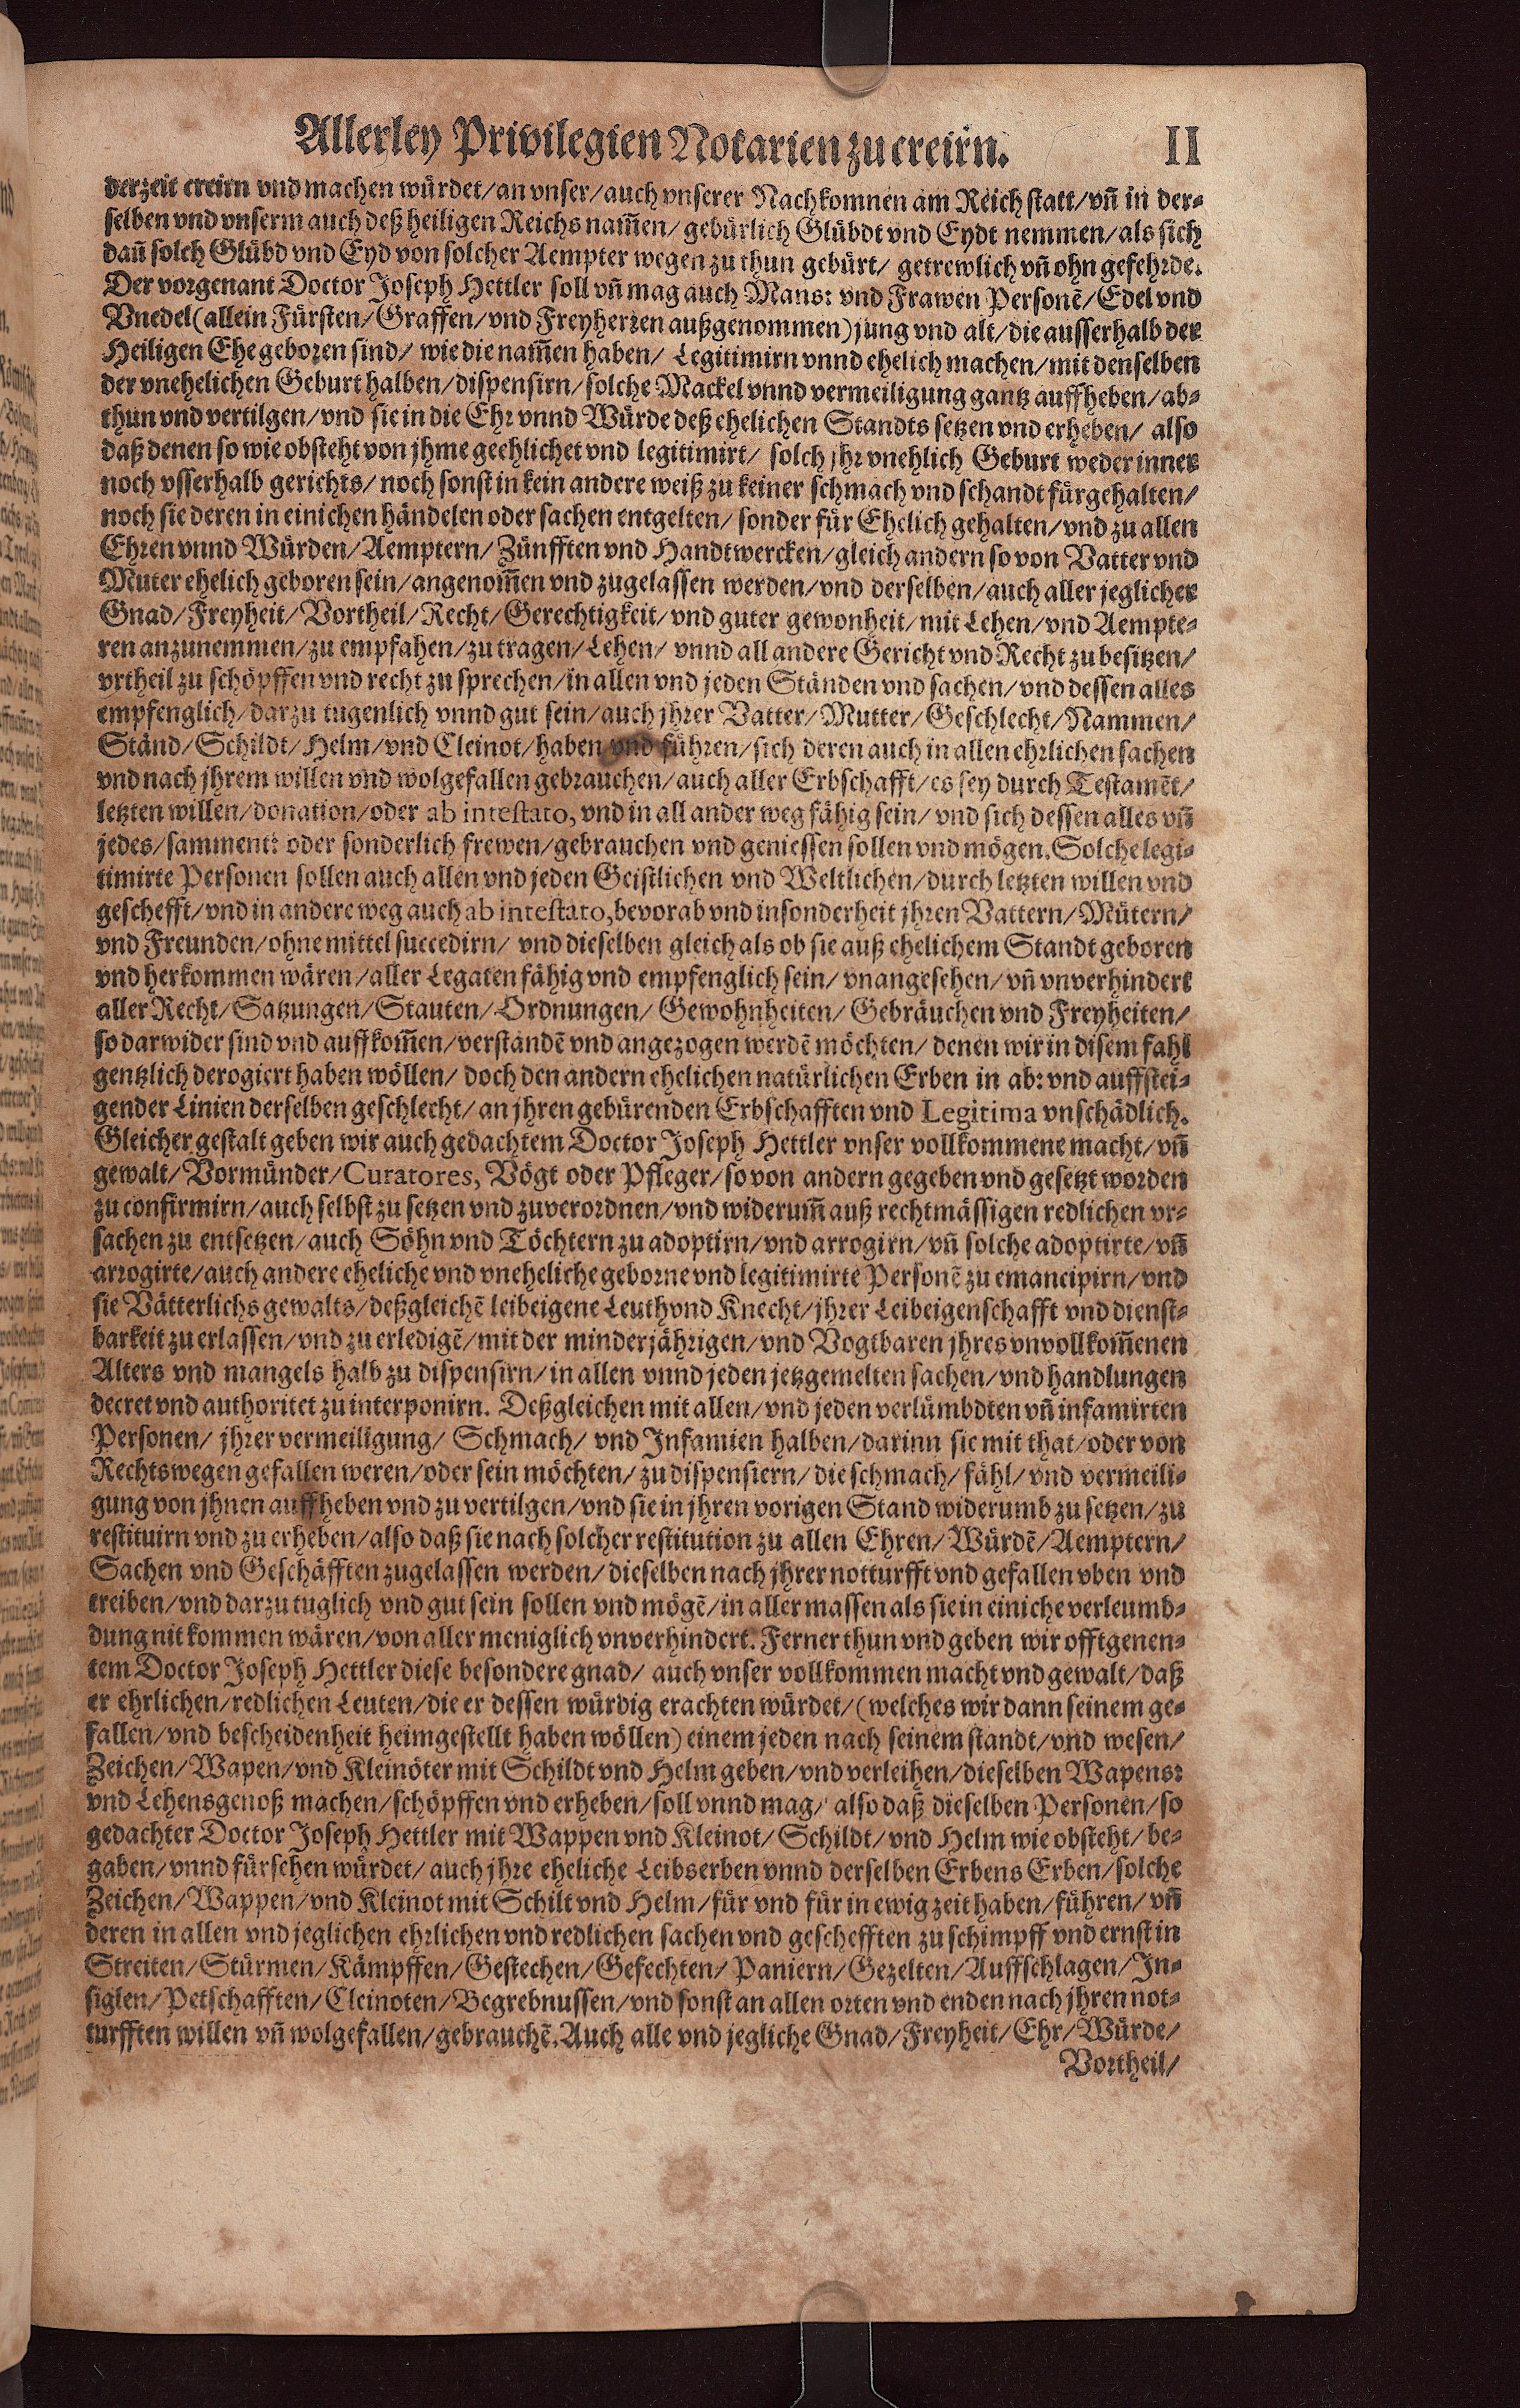 Allerley Privilegien Notarien zu creirn. II
derzeit creirn vnd machen würdet/an vnser/auch vnserer Nachkomnen am Reich statt/vn̄ in der⸗
selben vnd vnserm auch deß heiligen Reichs nam̄en/gebürlich Glübdt vnd Eydt nemmen/als sich
dan̄ solch Glübd vnd Eyd von solcher Aempter wegen zu thun gebürt/getrewlich vn̄ ohn gefehrde.
Der vorgenant Doctor Joseph Hettler soll vn̄ mag auch Mans: vnd Frawen Personē/Edel vnd
Vnedel (allein Fürsten/Graffen/vnd Freyherren außgenommen) jung vnd alt/die ausserhalb der
Heiligen Ehe geboren sind/wie die nam̄en haben/Legitimirn vnnd ehelich machen/mit denselben
der vnehelichen Geburt halben/dispensirn/solche Mackel vnnd vermeiligung gantz auffheben/ab⸗
thun vnd vertilgen/vnd sie in die Ehr vnnd Würde deß ehelichen Standts setzen vnd erheben/also
daß denen so wie obsteht von jhme geehlichet vnd legitimirt/solch jhr vnehlich Geburt weder inner
noch vsserhalb gerichts/noch sonst in kein andere weiß zu keiner schmach vnd schandt fürgehalten/
noch sie deren in einichen händelen oder sachen entgelten/sonder für Ehelich gehalten/vnd zu allen
Ehren vnnd Würden/Aemptern/Zünfften vnd Handtwercken/gleich andern so von Vatter vnd
Muter ehelich geboren sein/angenom̄en vnd zugelassen werden/vnd derselben/auch aller jeglicher
Gnad/Freyheit/Vortheil/Recht/Gerechtigkeit/vnd guter gewonheit/mit Lehen/vnd Aempte⸗
ren anzunemmen/zu empfahen/zu tragen/Lehen/vnnd all andere Gericht vnd Recht zu besitzen/
vrtheil zu schöpffen vnd recht zu sprechen/in allen vnd jeden Ständen vnd sachen/vnd dessen alles
empfenglich/darzu tugenlich vnnd gut sein/auch jhrer Vatter/Mutter/Geschlecht/Nammen/
Ständ/Schildt/Helm/vnd Cleinot/haben vnd führen/sich deren auch in allen ehrlichen sachen
vnd nach jhrem willen vnd wolgefallen gebrauchen/auch aller Erbschafft/es sey durch Testamēt/
letzten willen/donation/oder ab intestato, vnd in all ander weg fähig sein/vnd sich dessen alles vn̄
jedes/samment: oder sonderlich frewen/gebrauchen vnd geniessen sollen vnd mögen. Solche legi⸗
timirte Personen sollen auch allen vnd jeden Geistlichen vnd Weltlichen/durch letzten willen vnd
geschefft/vnd in andere weg auch ab intestato, bevorab vnd insonderheit jhren Vattern/Mütern/
vnd Freunden/ohne mittel succedirn/vnd dieselben gleich als ob sie auß ehelichem Standt geboren
vnd herkommen wären/aller Legaten fähig vnd empfenglich sein/vnangesehen/vn̄ vnverhindert
aller Recht/Satzungen/Stauten/Ordnungen/Gewohnheiten/Gebräuchen vnd Freyheiten/
so darwider sind vnd auffkom̄en/verstandē vnd angezogen werdē möchten/denen wir in disem fahl
gentzlich derogiert haben wöllen/doch den andern ehelichen natürlichen Erben in ab: vnd auffstei⸗
gender Linien derselben geschlecht/an jhren gebürenden Erbschafften vnd Legitima vnschädlich.
Gleicher gestalt geben wir auch gedachtem Doctor Joseph Hettler vnser vollkommene macht/vn̄
gewalt/Vormünder/Curatores, Vögt oder Pfleger/so von andern gegeben vnd gesetzt worden
zu confirmirn/auch selbst zu setzen vnd zuverordnen/vnd widerum̄ auß rechtmässigen redlichen vr⸗
sachen zu entsetzen/auch Söhn vnd Töchtern zu adoptirn/vnd arrogirn/vn̄ solche adoptirte/vn̄
arrogirte/auch andere eheliche vnd vneheliche geborne vnd legitimirte Personē zu emancipirn/vnd
sie Vätterlichs gewalts/deßgleichē leibeigene Leuth vnd Knecht/jhrer Leibeigenschafft vnd dienst⸗
barkeit zu erlassen/vnd zu erledigē/mit der minderjährigen/vnd Vogtbaren jhres vnvollkom̄enen
Alters vnd mangels halb zu dispensirn/in allen vnnd jeden jetzgemelten sachen/vnd handlungen
decret vnd authoritet zu interponirn. Deßgleichen mit allen/vnd jeden verlümbdten vn̄ infamirten
Personen/jhrer vermeiligung/Schmach/vnd Infamien halben/darinn sie mit that/oder von
Rechtswegen gefallen weren/oder sein möchten/zu dispensiern/die schmach/fähl/vnd vermeili⸗
gung von jhnen auffheben vnd zu vertilgen/vnd sie in jhren vorigen Stand widerumb zu setzen/zu
restituirn vnd zu erheben/also daß sie nach solcher restitution zu allen Ehren/Würdē/Aemptern/
Sachen vnd Geschäfften zugelassen werden/dieselben nach jhrer notturfft vnd gefallen vben vnd
treiben/vnd darzu tuglich vnd gut sein sollen vnd mögē/in aller massen als sie in einiche verleumb⸗
dung nit kommen wären/von aller meniglich vnverhindert. Ferner thun vnd geben wir offtgenen⸗
tem Doctor Joseph Hettler diese besondere gnad/auch vnser vollkommen macht vnd gewalt/daß
er ehrlichen/redlichen Leuten/die er dessen würdig erachten würdet/(welches wir dann seinem ge⸗
fallen/vnd bescheidenheit heimgestellt haben wöllen) einem jeden nach seinem standt/vnd wesen/
Zeichen/Wapen/vnd Kleinöter mit Schildt vnd Helm geben/vnd verleihen/dieselben Wapens:
vnd Lehensgenoß machen/schöpffen vnd erheben/soll vnnd mag/also daß dieselben Personen/so
gedachter Doctor Joseph Hettler mit Wappen vnd Kleinot/Schildt/vnd Helm wie obsteht/be⸗
gaben/vnnd fürsehen würdet/auch jhre eheliche Leibserben vnnd derselben Erbens Erben/solche
Zeichen/Wappen/vnd Kleinot mit Schilt vnd Helm/für vnd für in ewig zeit haben/führen/vn̄
deren in allen vnd jeglichen ehrlichen vnd redlichen sachen vnd geschefften zu schimpff vnd ernst in
Streiten/Stürmen/Kämpffen/Gestechen/Gefechten/Paniern/Gezelten/Auffschlagen/In⸗
siglen/Petschafften/Cleinoten/Begrebnussen/vnd sonst an allen orten vnd enden nach jhren not⸗
turfften willen vn̄ wolgefallen/gebrauchē. Auch alle vnd jegliche Gnad/Freyheit/Ehr/Würde/
Vortheil/